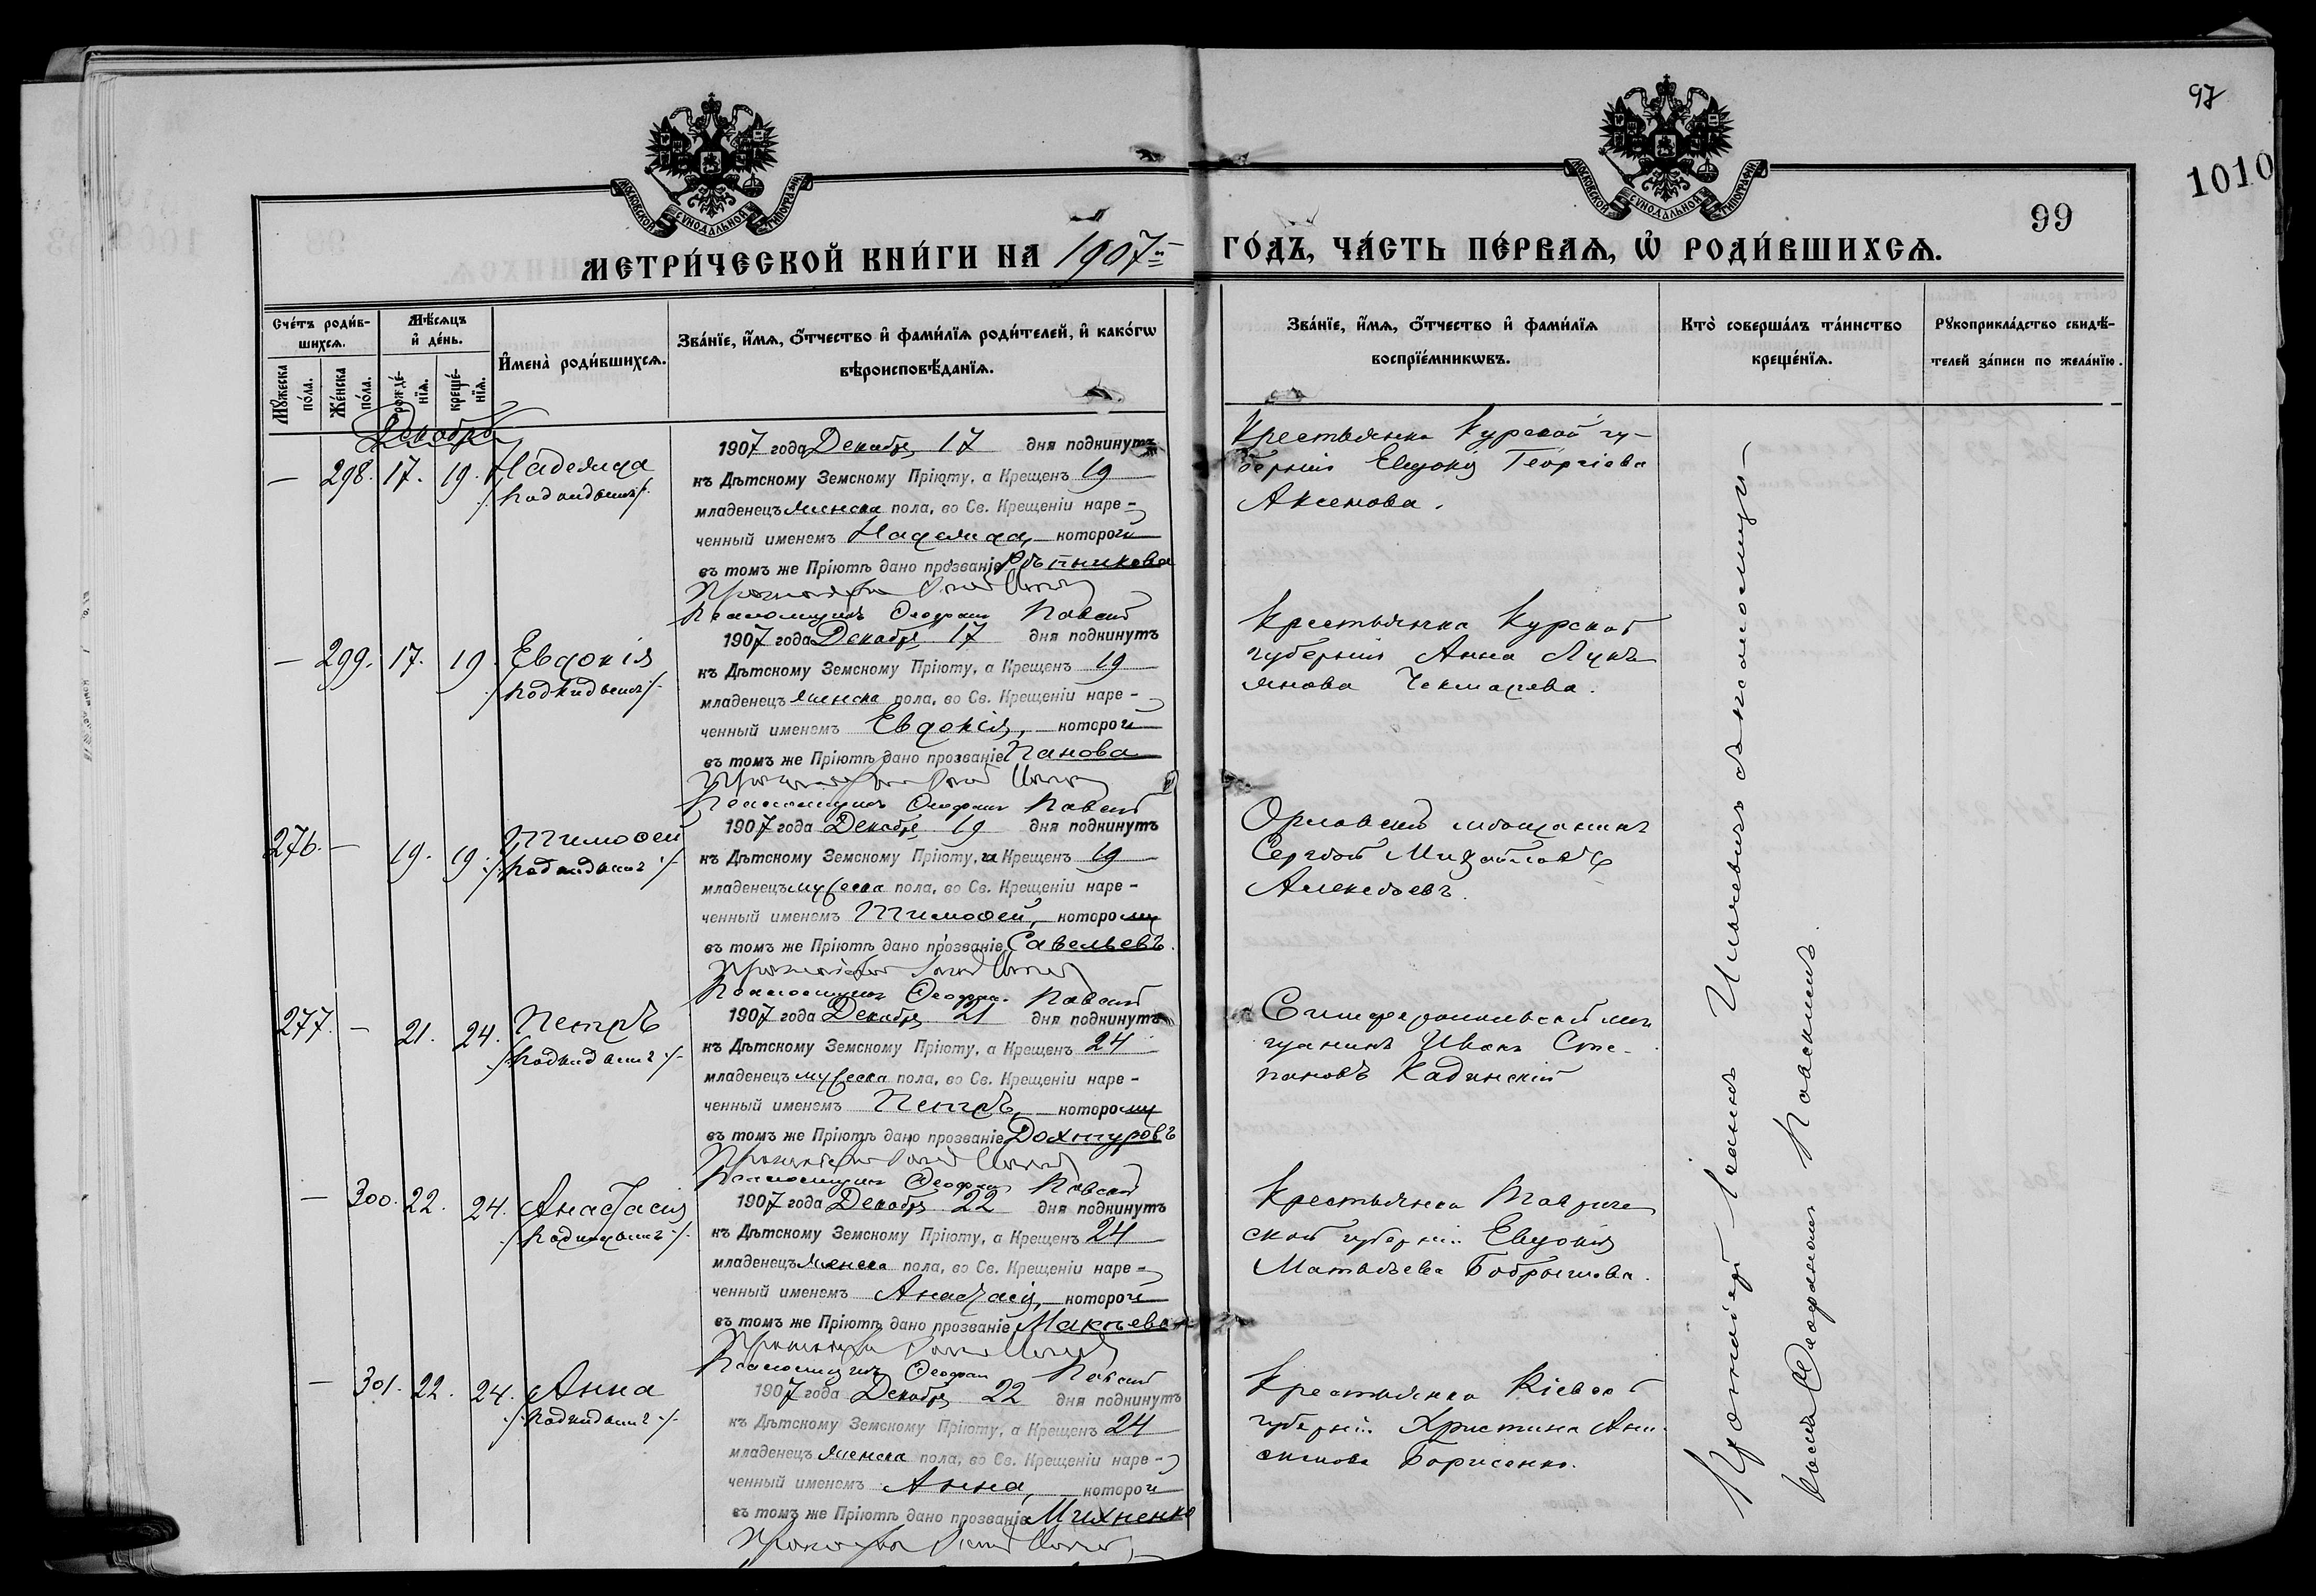 97
1010
99
МОСКОВСКОЙ СУНОДАЛЬНОЙ ТИПОГРАФІИ
МОСКОВСКОЙ СУНОДАЛЬНОЙ ТИПОГРАФІИ
МЕТРИ́ЧЕСКОЙ КНИ́ГИ НА 1907 ГО́ДЪ, ЧА́СТЬ ПЕ́РВАѦ, Ѡ҆ РОДИ́ВШИХСѦ.
Счéтъ роди́в-
шихсѧ.
Мꙋ́жеска по́ла.
Же́нска по́ла.
Мѣ́сѧцъ и҆ де́нь.
рожде́-нїѧ.
креще́-нїѧ.
И҆мена̀ роди́вшихсѧ.
Зва́нїе, и҆́мѧ, ѻ҆́тчество и҆ фами́лїѧ роди́телей, и҆ како́гѡ
вѣроисповѣ́данїѧ.
Зва́нїе, и҆́мѧ, ѻ҆́тчество и҆ фами́лїѧ
воспрїе́мникѡвъ.
Кто̀ соверша́лъ та́инство
креще́нїѧ.
Рꙋкоприкла́дство свидѣ́-
телей за́писи по жела́нїю.
Декабрь
— 298. 17. 19. Надежда
/подкидышъ/
1907 года Декабря 17 дня подкинутъ
къ Дѣтскому Земскому Пріюту, а Крещенъ 19
младенецъ женска пола, во Св. Крещеніи наре-
ченный именемъ Надежда, которой
въ томъ же Пріютѣ дано прозваніе
Протоіерей
Псаломщикъ Ѳеофанъ Павскій
Крестьянка Курской гу-
берніи Евдокія Георгіева
Аксенова.
— 299. 17. 19. Евдокія
/подкидышъ/
1907 года Декабря 17 дня подкинутъ
къ Дѣтскому Земскому Пріюту, а Крещенъ 19
младенецъ женска пола, во Св. Крещеніи наре-
ченный именемъ Евдокія, которой
въ томъ же Пріютѣ дано прозваніе Панова
Протоіерей
Псаломщикъ Ѳеофанъ Павскій
Крестьянка Курской
губерніи Анна Лукь
янова Чекмарева.
276. — 19. 19. Тимоѳей
/подкидышъ/
1907 года Декабря 19 дня подкинутъ
къ Дѣтскому Земскому Пріюту, а Крещенъ 19
младенецъ мужеска пола, во Св. Крещеніи наре-
ченный именемъ Тимоѳей, которому
въ томъ же Пріютѣ дано прозваніе Савельевъ.
Протоіерей
Псаломщикъ Ѳеофанъ Павскій
Орловскій мѣщанинъ
Сергѣй Михайловъ
Алексѣевъ.
277. — 21. 24. Петръ
/подкидышъ/
1907 года Декабря 21 дня подкинутъ
къ Дѣтскому Земскому Пріюту, а Крещенъ 24
младенецъ мужеска пола, во Св. Крещеніи наре-
ченный именемъ Петръ, которому
въ томъ же Пріютѣ дано прозваніе Дохтуровъ
Протоіерей
Псаломщикъ Ѳеофанъ Павскій
Симферопольскій мѣ
щанинъ Иванъ Сте-
пановъ Кадинскій
— 300. 22. 24. Анастасія
/подкидышъ/
1907 года Декабря 22 дня подкинутъ
къ Дѣтскому Земскому Пріюту, а Крещенъ 24
младенецъ женска пола, во Св. Крещеніи наре-
ченный именемъ Анастасія, которой
въ томъ же Пріютѣ дано прозваніе Макѣева
Протоіерей
Псаломщикъ Ѳеофанъ Павскій
Крестьянка Тавриче
ской губерніи Евдокія
Матвѣева Бобрышова.
— 301. 22. 24. Анна
/подкидышъ/
1907 года Декабря 22 дня подкинутъ
къ Дѣтскому Земскому Пріюту, а Крещенъ 24
младенецъ женска пола, во Св. Крещеніи наре-
ченный именемъ Анна, которой
въ томъ же Пріютѣ дано прозваніе Михненко
Протоіерей
Крестьянка Кіевской
губерніи Христина Ани-
симова Борисенко.
Протоіерей Іоаннъ Ильичевичъ съ псаломщи-
комъ Ѳеофаномъ Павскимъ.